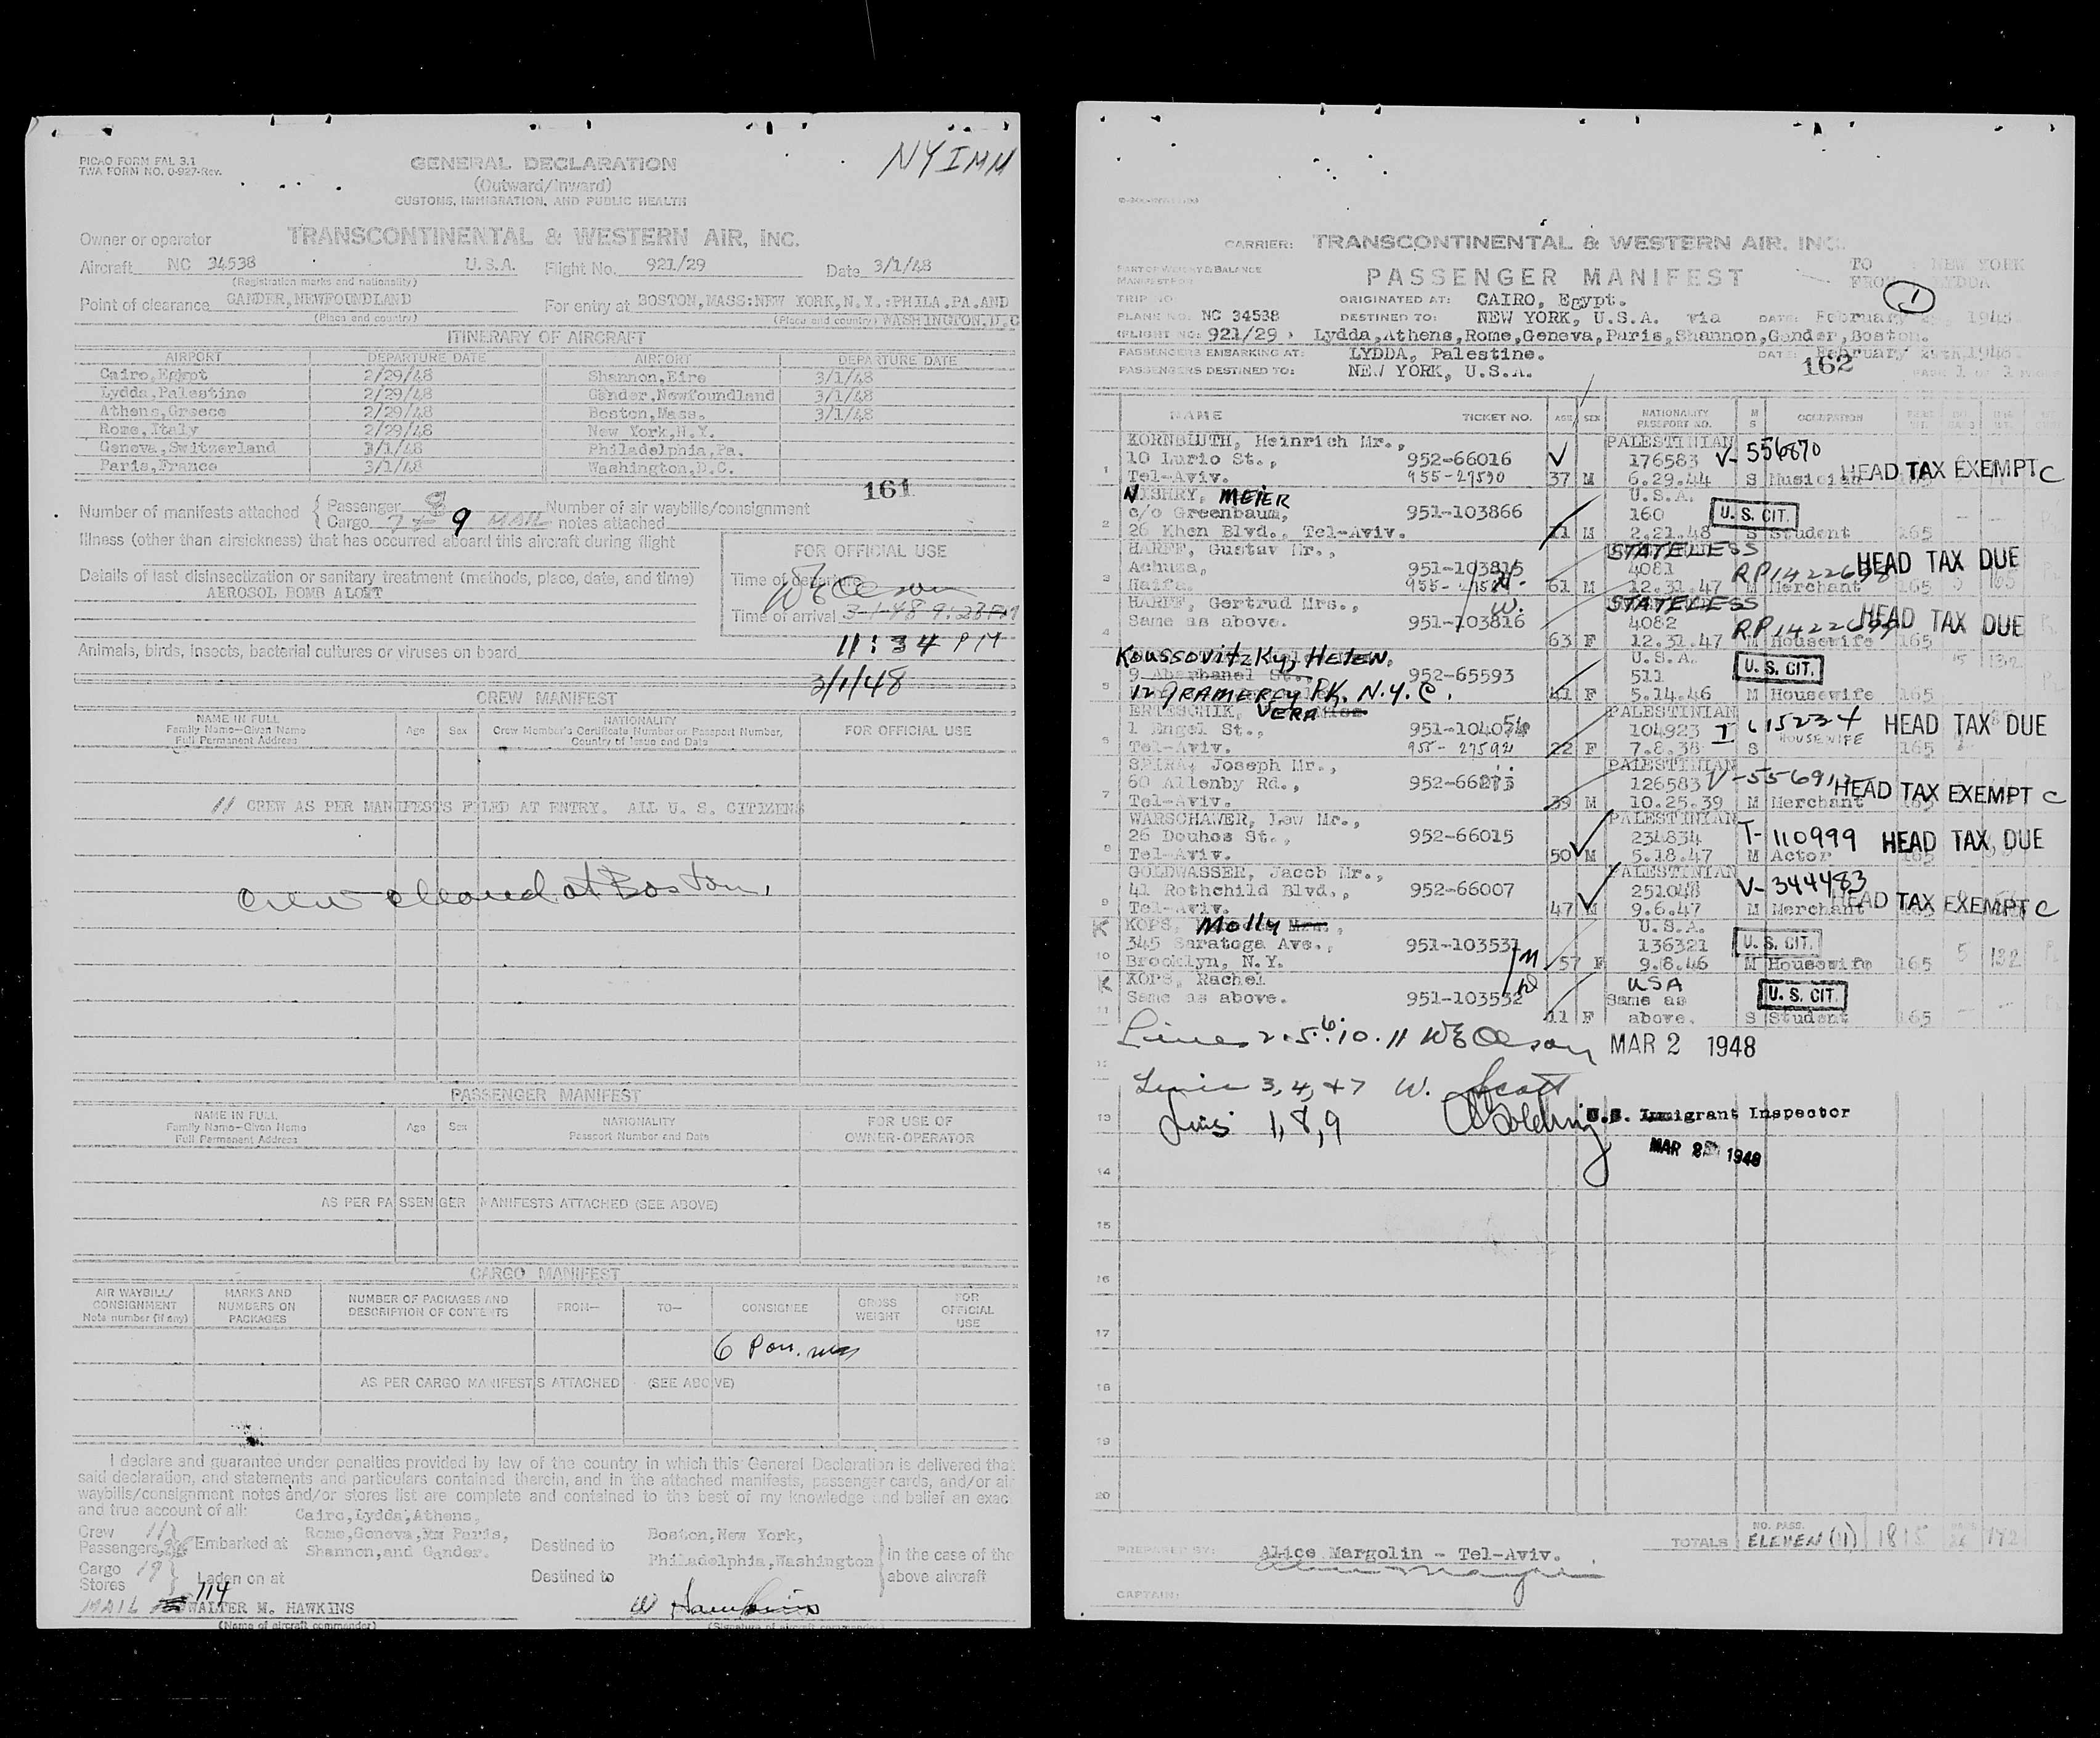 PICAO FORM FAL 3.1
TWA FORM NO. O-927-Rev.
GENERAL DECLARATION
(Outward/Inward)
CUSTOMS, IMMIGRATION, AND PUBLIC HEALTH
NYIMM
Owner or operator TRANSCONTINENTAL & WESTERN AIR, INC.
Aircraft NC 34538 U.S.A. Flight No. 921/29 Date 3/1/48
(Registration marks and nationality)
Point of clearance GANDER, NEWFOUNDLAND For entry at BOSTON, MASS:NEW YORK, N.Y.:PHILA.PA.AND
(Place and country) (Place and country) WASHINGTON, D.C
ITINERARY OF AIRCRAFT
AIRPORT DEPARTURE DATE AIRPORT DEPARTURE DATE
Cairo, Egypt 2/29/48 Shannon, Eire 3/1/48
Lydda, Palestine 2/29/48 Gander, Newfoundland 3/1/48
Athens, Greece 2/29/48 Boston, Mass. 3/1/48
Rome, Italy 2/29/48 New York, N.Y.
Geneva, Switzerland 3/1/48 Philadelphia, Pa.
Paris, France 3/1/48 Washington, D.C.
161
Number of manifests attached { Passenger 8 Number of air waybills/consignment
Cargo 9 MAIL notes attached
Illness (other than airsickness) that has occurred aboard this aircraft during flight
FOR OFFICIAL USE
Details of last disinsectization or sanitary treatment (methods, place, date, and time)
AEROSOL BOMB ALOFT
Time of departure
WE Olson
Time of arrival 3-1-48 9:28 PM
11:34 PM
Animals, birds, insects, bacterial cultures or viruses on board
3/1/48
CREW MANIFEST
NAME IN FULL
Family Name—Given Name
Full Permanent Address
Age Sex
NATIONALITY
Crew Member's Certificate Number or Passport Number,
Country of Issue and Date
FOR OFFICIAL USE
11 CREW AS PER MANIFESTS FILED AT ENTRY. ALL U. S. CITIZENS
Crew cleared at Boston.
PASSENGER MANIFEST
NAME IN FULL
Family Name—Given Name
Full Permanent Address
Age Sex
NATIONALITY
Passport Number and Date
FOR USE OF
OWNER-OPERATOR
AS PER PASSENGER MANIFESTS ATTACHED (SEE ABOVE)
CARGO MANIFEST
AIR WAYBILL/
CONSIGNMENT
Note number (if any)
MARKS AND
NUMBERS ON
PACKAGES
NUMBER OF PACKAGES AND
DESCRIPTION OF CONTENTS
FROM— TO— CONSIGNEE
GROSS
WEIGHT
FOR
OFFICIAL
USE
6
AS PER CARGO MANIFESTS ATTACHED (SEE ABOVE)
I declare and guarantee under penalties provided by law of the country in which this General Declaration is delivered that
said declaration, and statements and particulars contained therein, and in the attached manifests, passenger cards, and/or air
waybills/consignment notes and/or stores list are complete and contained to the best of my knowledge and belief an exac
and true account of all:
Cairo, Lydda, Athens,
Crew 11 Rome, Geneva, Paris, Boston, New York,
Passengers Embarked at Shannon, and Gander. Destined to Philadelphia, Washington in the case of the
Cargo 19 Laden on at Destined to above aircraft
Stores 714
MAIL WALTER M. HAWKINS W Hawkins
(Name of aircraft commander) (Signature of aircraft commander)
CARRIER: TRANSCONTINENTAL & WESTERN AIR, INC.
PART OF WEIGHT & BALANCE
MANIFEST FOR
PASSENGER MANIFEST
TO NEW YORK
FROM LYDDA
1
TRIP NO. ORIGINATED AT: CAIRO, Egypt.
PLANE NO. NC 34538 DESTINED TO: NEW YORK, U.S.A. via DATE: February
(FLIGHT NO: 921/29 , Lydda, Athens, Rome, Geneva, Paris, Shannon, Gander, Boston.
PASSENGERS EMBARKING AT: LYDDA, Palestine. DATE: February
PASSENGERS DESTINED TO: NEW YORK, U.S.A. 162
NAME TICKET NO. AGE SEX NATIONALITY PASSPORT NO. M S OCCUPATION
KORNBLUTH, Heinrich Mr., PALESTINIAN
10 Lurio St., 952-66016 176583 V- 556870
1 Tel-Aviv. 955-27590 37 M 6.29.44 S Musician HEAD TAX EXEMPT C
NISHRY, MEIER U.S.A.
c/o Greenbaum, 951-103866 160 U. S. CIT.
2 26 Khen Blvd., Tel-Aviv. 11 M 2.21.48 S Student 165
HARFF, Gustav Mr., STATELESS
Achuza, 951-103815 4081 HEAD TAX DUE
3 Haifa. 61 M 12.31.47 M Merchant 165
HARFF, Gertrud Mrs., W. STATELESS
Same as above. 951-103816 4082 HEAD TAX DUE
4 63 F 12.31.47 M Housewife 165
Koussovitzky, HELEN. U.S.A.
9 Abarbanel St., 952-65593 511 U. S. CIT.
5 12 GRAMERCY PK. N.Y.C. 41 F 5.14.46 M Housewife 165
ERTESCHIK, VERA PALESTINIAN
1 Engel St., 951-104054 104923 I 615234 HEAD TAX DUE
6 Tel-Aviv. 955-27592 22 F 7.8.38 S HOUSEWIFE 165
SPIRA, Joseph Mr., PALESTINIAN
60 Allenby Rd., 952-66273 126583 HEAD TAX EXEMPT C
7 Tel-Aviv. 39 M 10.25.39 M Merchant
WARSCHAWER, Lew Mr., PALESTINIAN
26 Douhos St., 952-66015 234834 T- 110999 HEAD TAX DUE
8 Tel-Aviv. 50 M 5.18.47 M Actor 165
GOLDWASSER, Jacob Mr., PALESTINIAN
41 Rothchild Blvd., 952-66007 251048 V- 344483
9 Tel-Aviv. 47 M 9.6.47 M Merchant HEAD TAX EXEMPT C
K KOPS, Molly Mrs., U.S.A.
345 Saratoga Ave., 951-103531 136321 U. S. CIT.
10 Brooklyn, N.Y. M 57 F 9.8.46 M Housewife 165 5 132
K KOPS, Rachel USA
Same as above. 951-103532 Same as U. S. CIT.
11 11 F above. S Student 165
Lines 2.5.6.10.11 WE Olson MAR 2 1948
Lines 3, 4, +7 W. Scott
13 Lines 1,8,9 U.S. Immigrant Inspector
MAR 2 1948
14
15
16
17
18
19
20
TOTALS NO. PASS. ELEVEN (11) 1815
PREPARED BY: Alice Margolin - Tel-Aviv.
CAPTAIN: